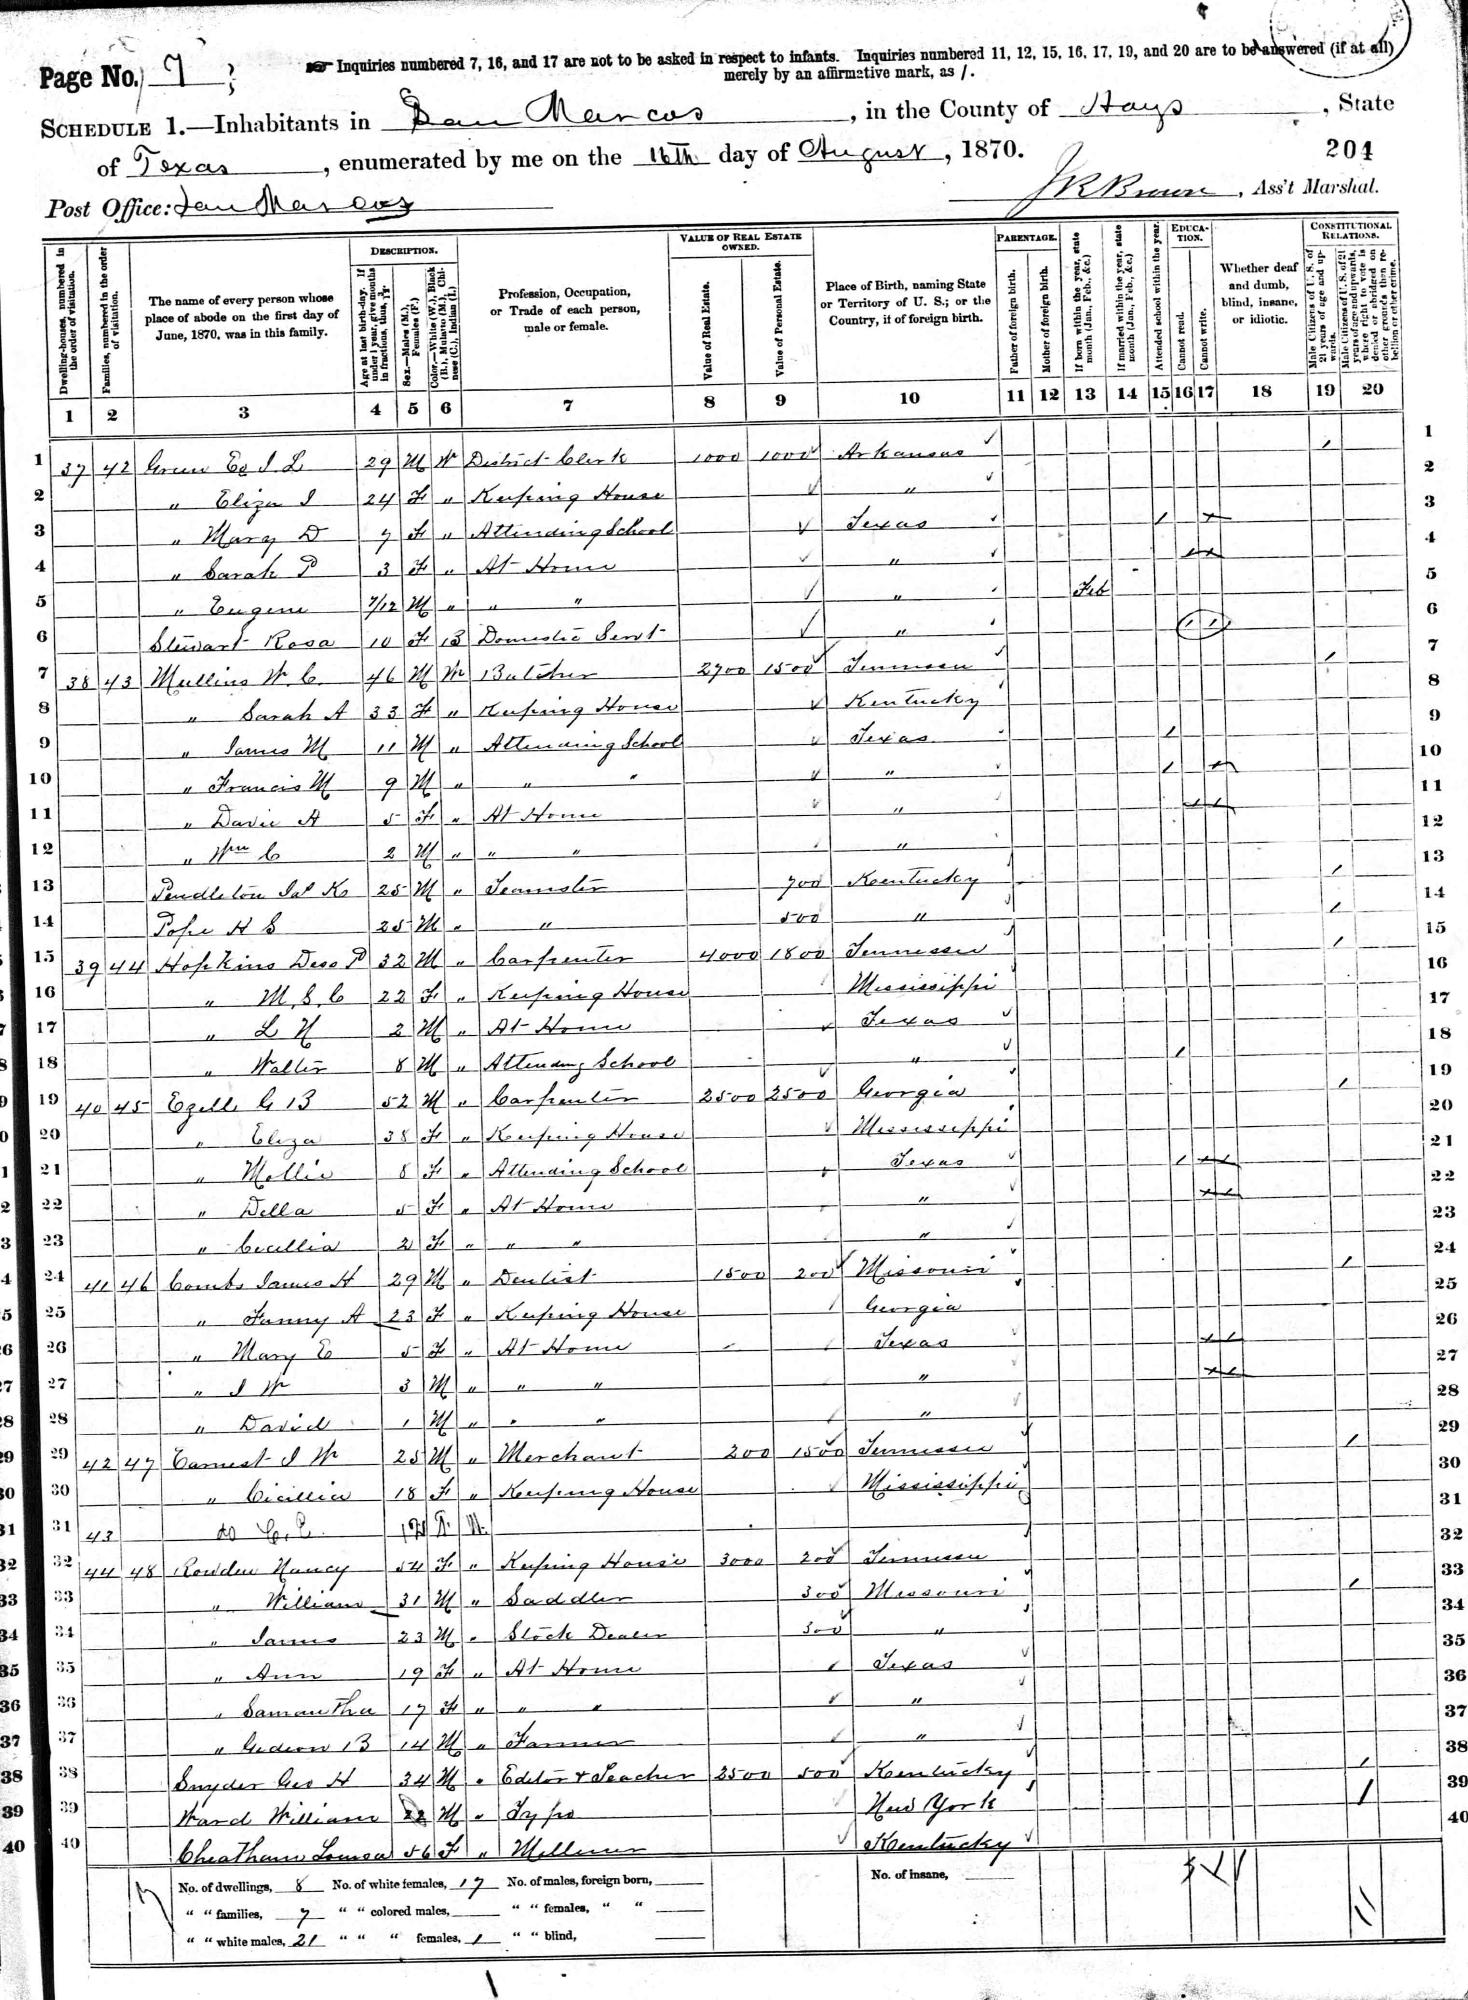 Page No. 7
Inquiries numbered 7, 16, and 17 are not to be asked in respect to infants. Inquiries numbered 11, 12, 15, 16, 17, 19, and 20 are to be answered (if at all)
merely by an affirmative mark, as /.
SCHEDULE 1.—Inhabitants in San Marcos, in the County of Hays, State
of Texas, enumerated by me on the 16th day of August, 1870.
204
Post Office: San Marcos
J R Brown, Ass't Marshal.
Dwelling-houses, numbered in the order of visitation.
Families, numbered in the order of visitation.
The name of every person whose place of abode on the first day of June, 1870, was in this family.
DESCRIPTION.
Age at last birth-day. If under 1 year, give months in fractions, thus, 3/12
Sex.—Males (M.), Females (F.)
Color.—White (W.), Black (B.), Mulatto (M.), Chinese (C.), Indian (I.)
Profession, Occupation, or Trade of each person, male or female.
VALUE OF REAL ESTATE OWNED.
Value of Real Estate.
Value of Personal Estate.
Place of Birth, naming State or Territory of U. S.; or the Country, if of foreign birth.
PARENTAGE.
Father of foreign birth.
Mother of foreign birth.
If born within the year, state month (Jan., Feb., &c.)
If married within the year, state month (Jan., Feb., &c.)
Attended school within the year.
EDUCATION.
Cannot read.
Cannot write.
Whether deaf and dumb, blind, insane, or idiotic.
CONSTITUTIONAL RELATIONS.
Male Citizens of U. S. of 21 years of age and upwards.
Male Citizens of U. S. of 21 years of age and upwards, where right to vote is denied or abridged on other grounds than rebellion or other crime.
1 2 3 4 5 6 7 8 9 10 11 12 13 14 15 16 17 18 19 20
1 37 42 Green Ed J L 29 M W District Clerk 1000 1000 Arkansas / 1
2 " Eliza J 24 F " Keeping House " 2
3 " Mary D 7 F " Attending School Texas / 3
4 " Sarah P 3 F " At Home " 4
5 " Eugene 7/12 M " " " " Feb 5
6 Stewart Rosa 10 F B Domestic Servt " / / 6
7 38 43 Mullins W. C. 46 M W Butcher 2700 1500 Tennessee / 7
8 " Sarah A 33 F " Keeping House Kentucky 8
9 " James M 11 M " Attending School Texas / 9
10 " Francis M 9 M " " " " / 10
11 " Davie A 5 F " At Home " 11
12 " Wm C 2 M " " " " 12
13 Pendleton Jas K 25 M " Teamster 700 Kentucky / 13
14 Pope H S 25 M " " 500 " / 14
15 39 44 Hopkins Deso P 32 M " Carpenter 4000 1800 Tennessee / 15
16 " M. S. C 22 F " Keeping House Mississippi 16
17 " L H 2 M " At Home Texas 17
18 " Walter 8 M " Attending School " / 18
19 40 45 Ezell G B 52 M " Carpenter 2500 2500 Georgia / 19
20 " Eliza 38 F " Keeping House Mississippi 20
21 " Mollie 8 F " Attending School Texas / 21
22 " Della 5 F " At Home " 22
23 " Cecillia 2 F " " " " 23
24 41 46 Combs James H 29 M " Dentist 1500 200 Missouri / 24
25 " Fanny A 23 F " Keeping House Georgia 25
26 " Mary E 5 F " At Home Texas 26
27 " J W 3 M " " " " 27
28 " David 1 M " " " " 28
29 42 47 Earnest J W 25 M " Merchant 200 1500 Tennessee / 29
30 " Cicillia 18 F " Keeping House Mississippi 30
31 43 do C. E. 31
32 44 48 Rowden Nancy 54 F " Keeping House 3000 200 Tennessee 32
33 " William 31 M " Saddler 300 Missouri / 33
34 " James 23 M " Stock Dealer 300 " 34
35 " Ann 19 F " At Home Texas 35
36 " Samantha 17 F " " " " 36
37 " Gideon B 14 M " Farmer " 37
38 Snyder Geo H 34 M " Editor & Teacher 2500 500 Kentucky / 38
39 Ward William 22 M " Typo New York / 39
40 Cheatham Louisa 56 F " Milliner Kentucky 40
No. of dwellings, 8 No. of white females, 17 No. of males, foreign born, No. of insane,
" " families, 7 " " colored males, " " females, " "
" " white males, 21 " " " females, 1 " " blind,